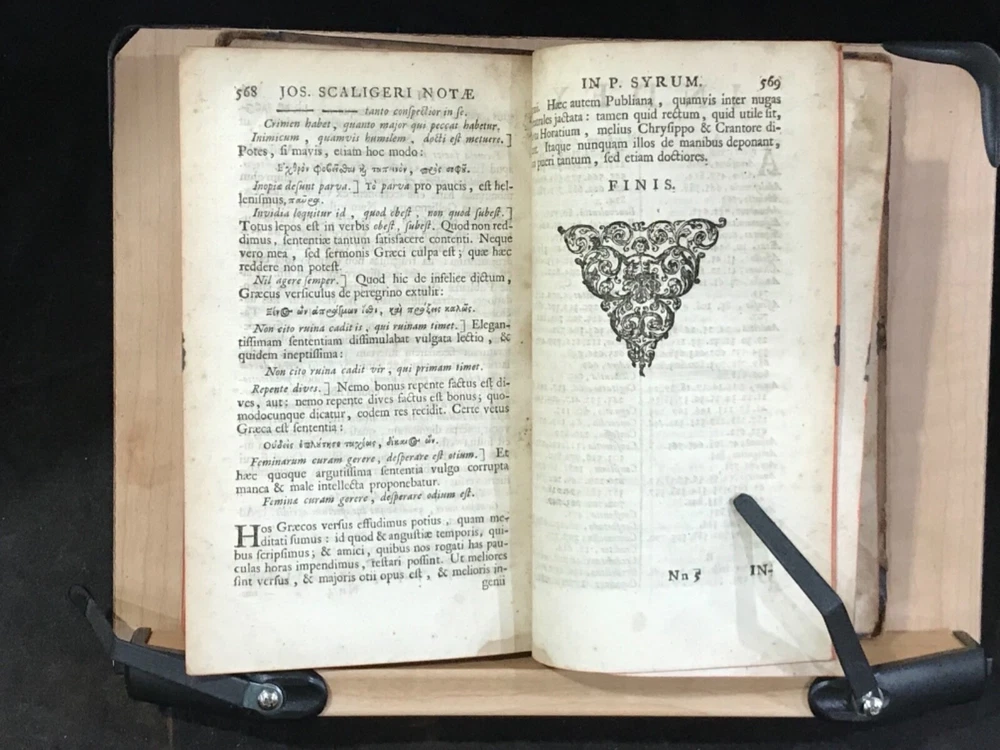 568 JOS. SCALIGERI NOTÆ
tanto conspectior in se.
Crimen habet, quanto major qui peccat habetur.
Inimicum, quamvis humilem, docti est metuere.]
Potes, si mavis, etiam hoc modo:
Inopiæ desunt parva.] Τὸ parva pro paucis, est hel-
lenismus, παῦρα.
Invidia loquitur id, quod obest, non quod subest.]
Totus lepos est in verbis obest, subest. Quod non red-
dimus, sententiæ tantum satisfacere contenti. Neque
vero mea, sed sermonis Græci culpa est; quæ hæc
reddere non potest.
Nil agere semper.] Quod hic de infelice dictum,
Græcus versiculus de peregrino extulit:
Non cito ruina cadit is, qui ruinam timet.] Elegan-
tissimam sententiam dissimulabat vulgata lectio, &
quidem ineptissima:
Non cito ruina cadit vir, qui primam timet.
Repente dives.] Nemo bonus repente factus est di-
ves, aut: nemo repente dives factus est bonus; quo-
modocunque dicatur, eodem res recidit. Certe vetus
Græca est sententia:
Οὐδεὶς ἐπλούτησε ταχέως, δίκαιος ὤν.
Feminarum curam gerere, desperare est otium.] Et
hæc quoque argutissima sententia vulgo corrupta
manca & male intellecta proponebatur.
Feminæ curam gerere, desperare odium est.
Hos Græcos versus effudimus potius, quam me-
ditati sumus: id quod & angustiæ temporis, qui-
bus scripsimus; & amici, quibus nos rogati has pau-
culas horas impendimus, testari possint. Ut meliores
sint versus, & majoris otii opus est, & melioris in-
genii
IN P. SYRUM. 569
Hæc autem Publiana, quamvis inter nugas
jactata: tamen quid rectum, quid utile sit,
Horatium, melius Chrysippo & Crantore di-
Itaque nunquam illos de manibus deponant,
pueri tantum, sed etiam doctiores.
FINIS.
Nn 5 IN-